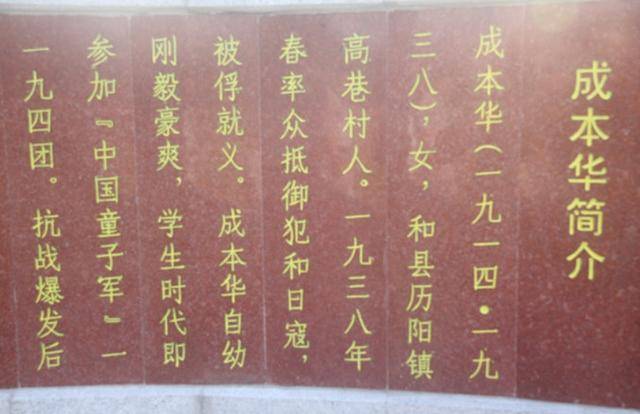 成本华简介
成本华(一九一四·一九
三八),女,和县历阳镇
高巷村人。一九三八年
春率众抵御犯和日寇,
被俘就义。成本华自幼
刚毅豪爽,学生时代即
参加『中国童子军』一
一九四团。抗战爆发后